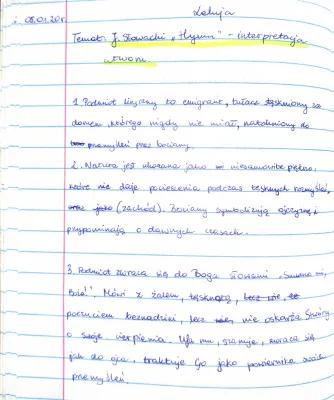 08.01.20r. Lekcja
Temat: J. Słowacki „Hymn" - interpretacja
utworu.
1. Podmiot liryczny to emigrant, tułacz stęskniony za
domem, którego nigdy nie miał, nakłoniony do
przemyśleń przez bociany.
2. Natura jest ukazana jako niesamowite piękno,
które nie daje pocieszenia podczas tęsknych rozmyślań,
(zachód). Bociany symbolizują ojczyznę i
przypominają o dawnych czasach.
3. Podmiot zwraca się do Boga słowami „Smutno mi,
Boże!". Mówi z żalem, tęsknotą,
poczuciem beznadziei, lecz nie oskarża Stwórcy
o swoje cierpienia. Ufa mu, szanuje, zwraca się
jak do ojca, traktuje Go jako powiernika swoich
przemyśleń.